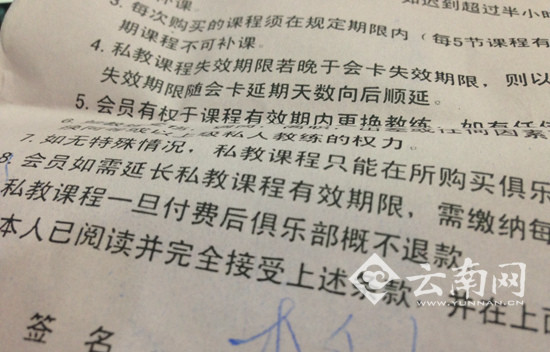 补课。
如迟到超过半小时
3. 每次购买的课程须在规定期限内（每5节课程有
期课程不可补课。
4. 私教课程失效期限若晚于会卡失效期限，则以
失效期限随会卡延期天数向后顺延。
5. 会员有权于课程有效期内更换教练，如有任何
私人教练的权力。
7. 如无特殊情况，私教课程只能在所购买俱乐
8. 会员如需延长私教课程有效期限，需缴纳每
私教课程一旦付费后俱乐部概不退款
本人已阅读并完全接受上述条款，并在上面
签名
云南网
WWW.YUNNAN.CN